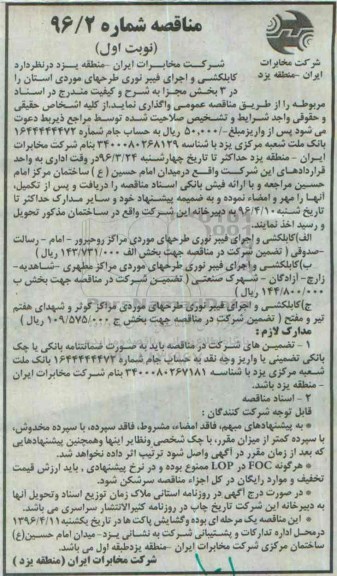 مناقصه شماره ۹۶/۲
(نوبت اول)
شرکت مخابرات
ایران -منطقه یزد
شرکت مخابرات ایران -منطقه یزد درنظردارد
کابلکشی و اجرای فیبر نوری طرحهای موردی استان را
در ۳ بخش مجزا به شرح و کیفیت مندرج در اسناد
مربوطه را از طریق مناقصه عمومی واگذاری نماید.از کلیه اشخاص حقیقی
و حقوقی واجد شرایط و تشخیص صلاحیت شده توسط مراجع ذیربط دعوت
می شود پس از واریزمبلغ ۵۰,۰۰۰/- ریال به حساب جام شماره ۱۶۴۴۴۴۴۴۷۲
بانک ملت شعبه مرکزی یزد با شناسه ۳۴۰۰۰۸۰۲۶۸۱۲۹ بنام شرکت مخابرات
ایران - منطقه یزد حداکثر تا تاریخ چهارشنبه ۹۶/۳/۲۴در وقت اداری به واحد
قراردادهای این شرکت واقع درمیدان امام حسین (ع) ساختمان مرکز امام
حسین مراجعه و با ارائه فیش بانکی اسناد مناقصه را دریافت و پس از تکمیل،
آنها را مهر و امضاء نموده و به ضمیمه پیشنهاد خود و سایر مدارک حداکثر تا
تاریخ شنبه ۹۶/۴/۱۰به دبیرخانه این شرکت واقع در ساختمان مذکور تحویل
و رسید اخذ نمایند.
الف)کابلکشی و اجرای فیبر نوری طرحهای موردی مراکز روحبرور - امام - رسالت
-صدوقی ( تضمین شرکت در مناقصه جهت بخش الف ۱۴۳/۷۳۱/۰۰۰ ریال )
ب)کابلکشی و اجرای فیبر نوری طرحهای موردی مراکز مطهری -شاهدیه-
زارچ- آزادگان - شهرک صنعتی ( تضمین شرکت در مناقصه جهت بخش ب
۱۴۴/۸۰۰/۰۰۰ ریال )
ج)کابلکشی و اجرای فیبر نوری طرحهای موردی مراکز کوثر و شهدای هفتم
تیر و مفتح ( تضمین شرکت در مناقصه جهت بخش ج ۱۰۹/۵۷۵/۰۰۰ ریال )
مدارک لازم :
۱ - تضمین های شرکت در مناقصه باید به صورت ضمانتنامه بانکی یا چک
بانکی تضمینی یا واریز وجه نقد به حساب جام شماره ۱۶۴۴۴۴۴۴۷۲ بانک ملت
شعبه مرکزی یزد با شناسه ۳۴۰۰۰۸۰۲۶۷۱۸۱ بنام شرکت مخابرات ایران
- منطقه یزد باشد.
۲ - اسناد مناقصه
قابل توجه شرکت کنندگان :
* به پیشنهادهای مبهم، فاقد امضاء، مشروط، فاقد سپرده، با سپرده مخدوش،
با سپرده کمتر از میزان مقرر، با چک شخصی ونظایر اینها وهمچنین پیشنهادهایی
که بعد از زمان مقرر در آگهی واصل شود ترتیب اثر داده نخواهد شد.
* هرگونه FOC در LOP ممنوع بوده و در نرخ پیشنهادی , باید ارزش قیمت
تخفیف و موارد رایگان در کل اجزاء مناقصه سرشکن شود.
* در صورت درج آگهی در روزنامه استانی ملاک زمان توزیع اسناد وتحویل آنها
به دبیرخانه این شرکت تاریخ چاپ در روزنامه کثیرالانتشار سراسری می باشد.
* این مناقصه یک مرحله ای بوده وگشایش پاکت ها در تاریخ یکشنبه ۱۳۹۶/۴/۱۱
درمحل اداره تدارکات و پشتیبانی شرکت به نشانی یزد- میدان امام حسین(ع)
ساختمان مرکزی شرکت مخابرات ایران -منطقه یزدطبقه اول می باشد.
شرکت مخابرات ایران (منطقه یزد )